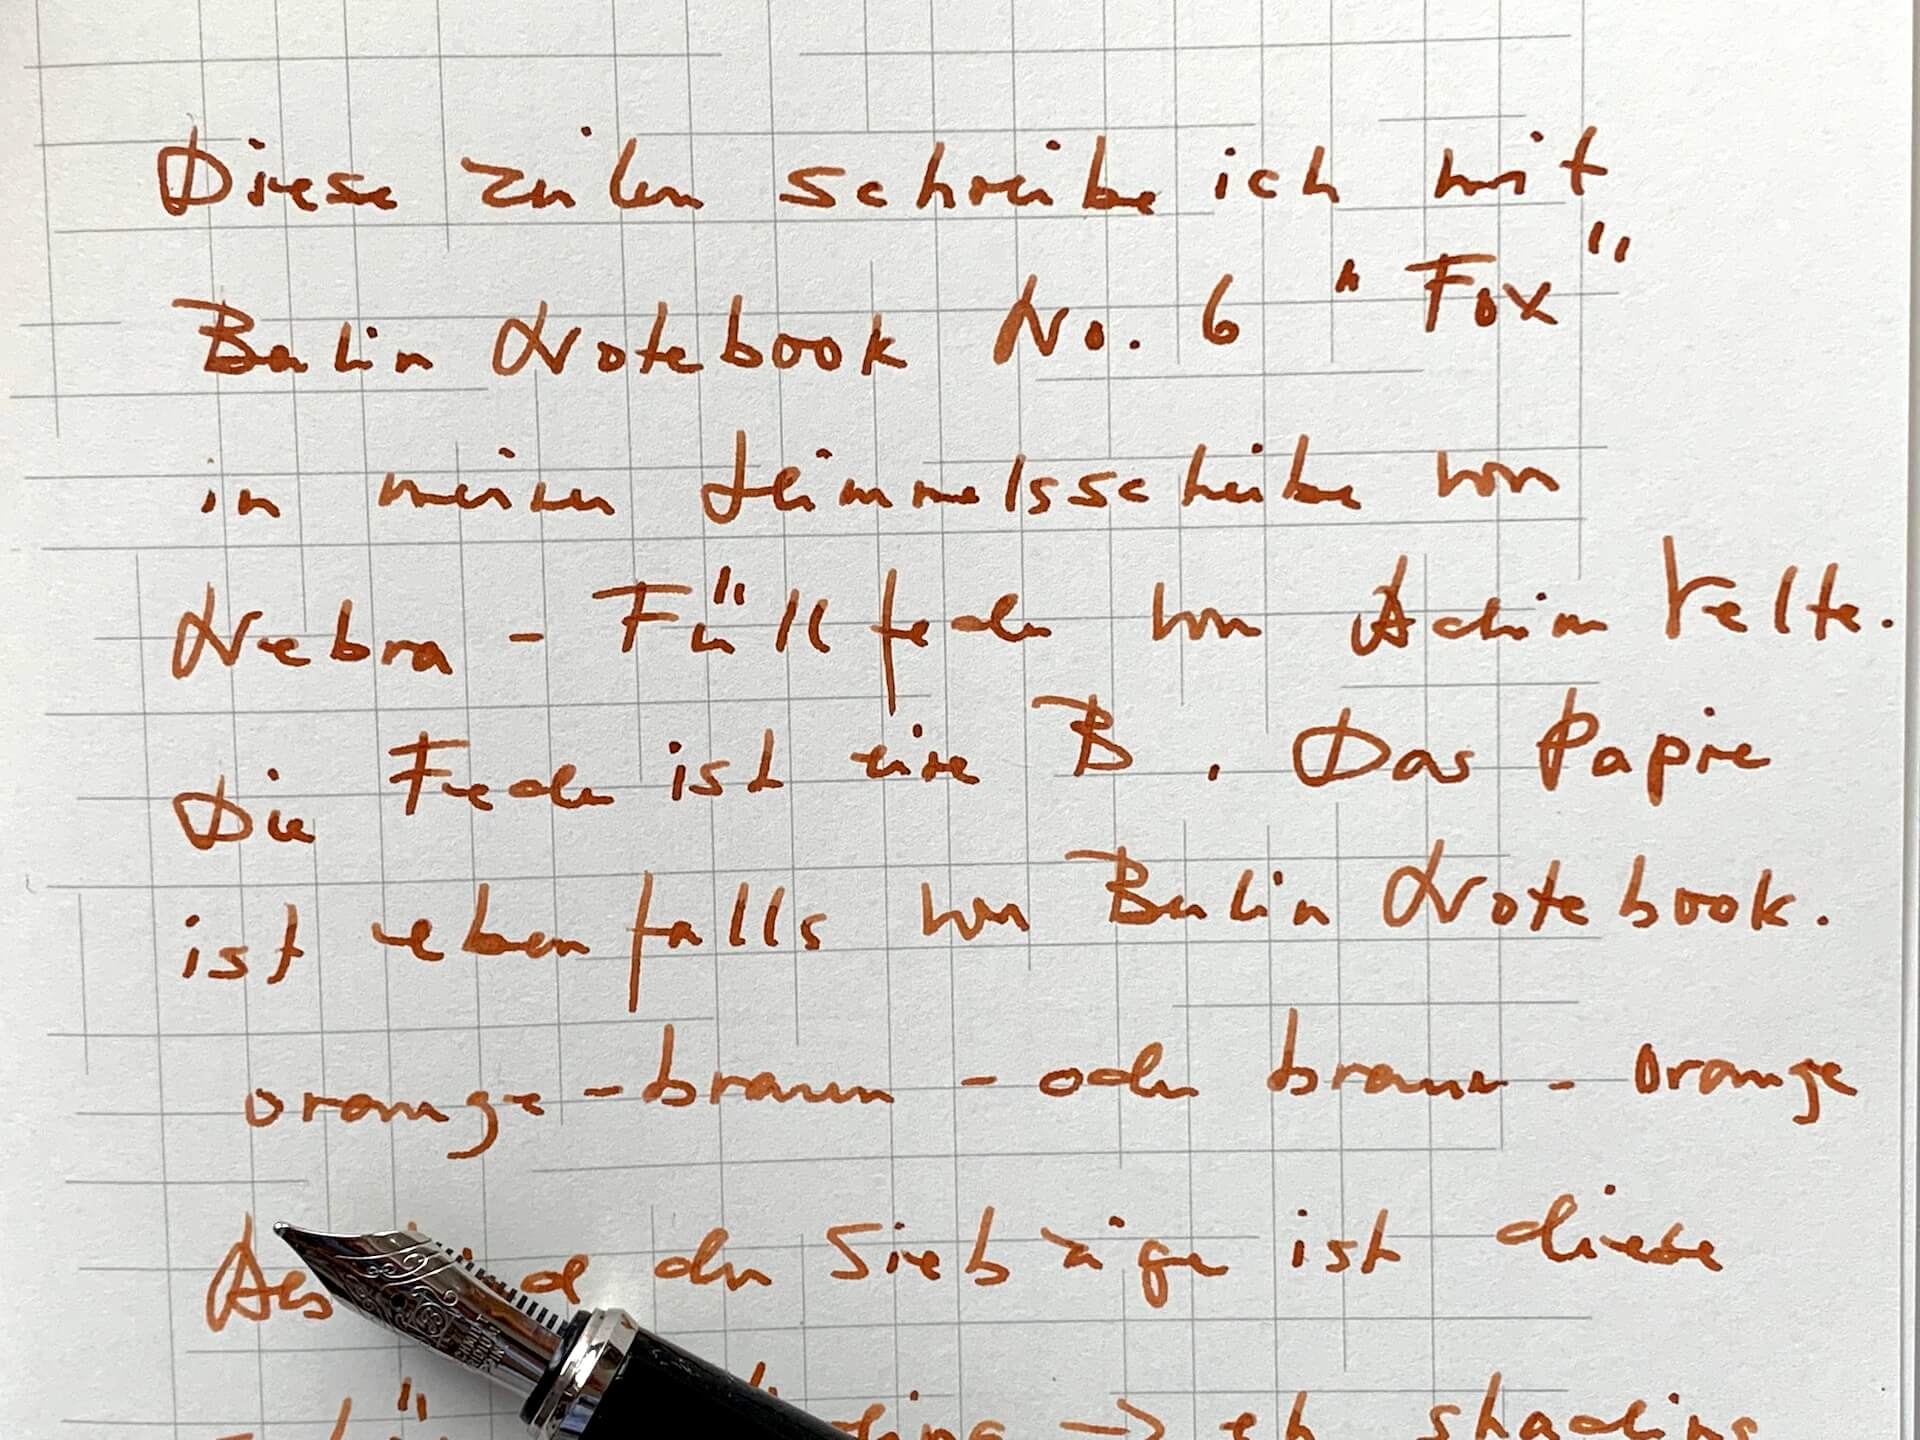 Diese Zeilen schreibe ich mit
Berlin Notebook No. 6 "Fox"
in meiner Himmelsscheibe von
Nebra - Füllfeder von Achim Velte.
Die Feder ist eine B. Das Papier
ist ebenfalls von Berlin Notebook.
orange-braun - oder braun-orange
der Siebziger ist diese
→ eh shading